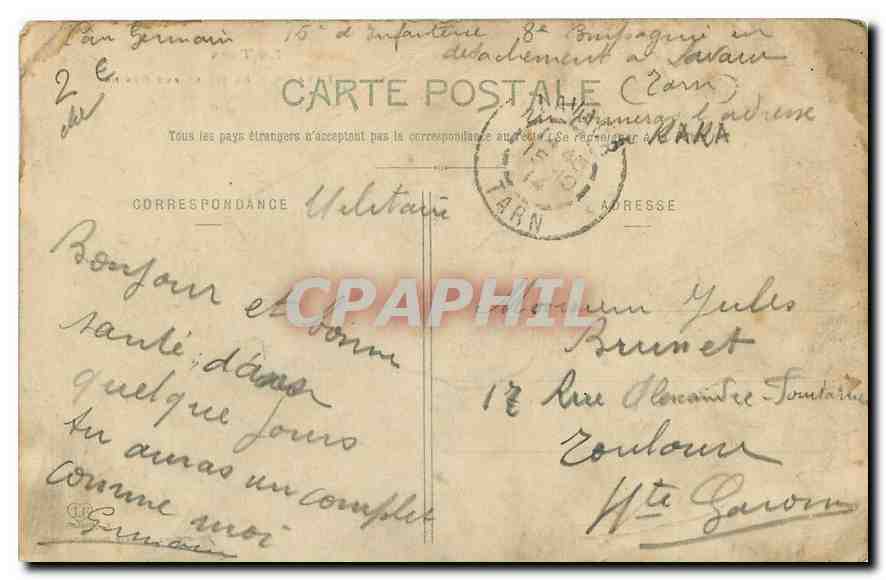 Germain 15e d'Infanterie 8e Compagnie en
détachement a Lavaur
(Tarn)
2 €
CARTE POSTALE
l'adresse
Tous les pays étrangers n'acceptent pas la correspondance au recto (Se renseigner à la
KAKA
15 -10
14
TARN
CORRESPONDANCE Militaire
ADRESSE
Bonjour et bonne
santé, dans
quelque jours
tu auras un complet
comme moi
Germain
Monsieur Jules
Brunet
17 Rue Alexandre-Fourtanier
Toulouse
Hte Garonne
CPAPHIL